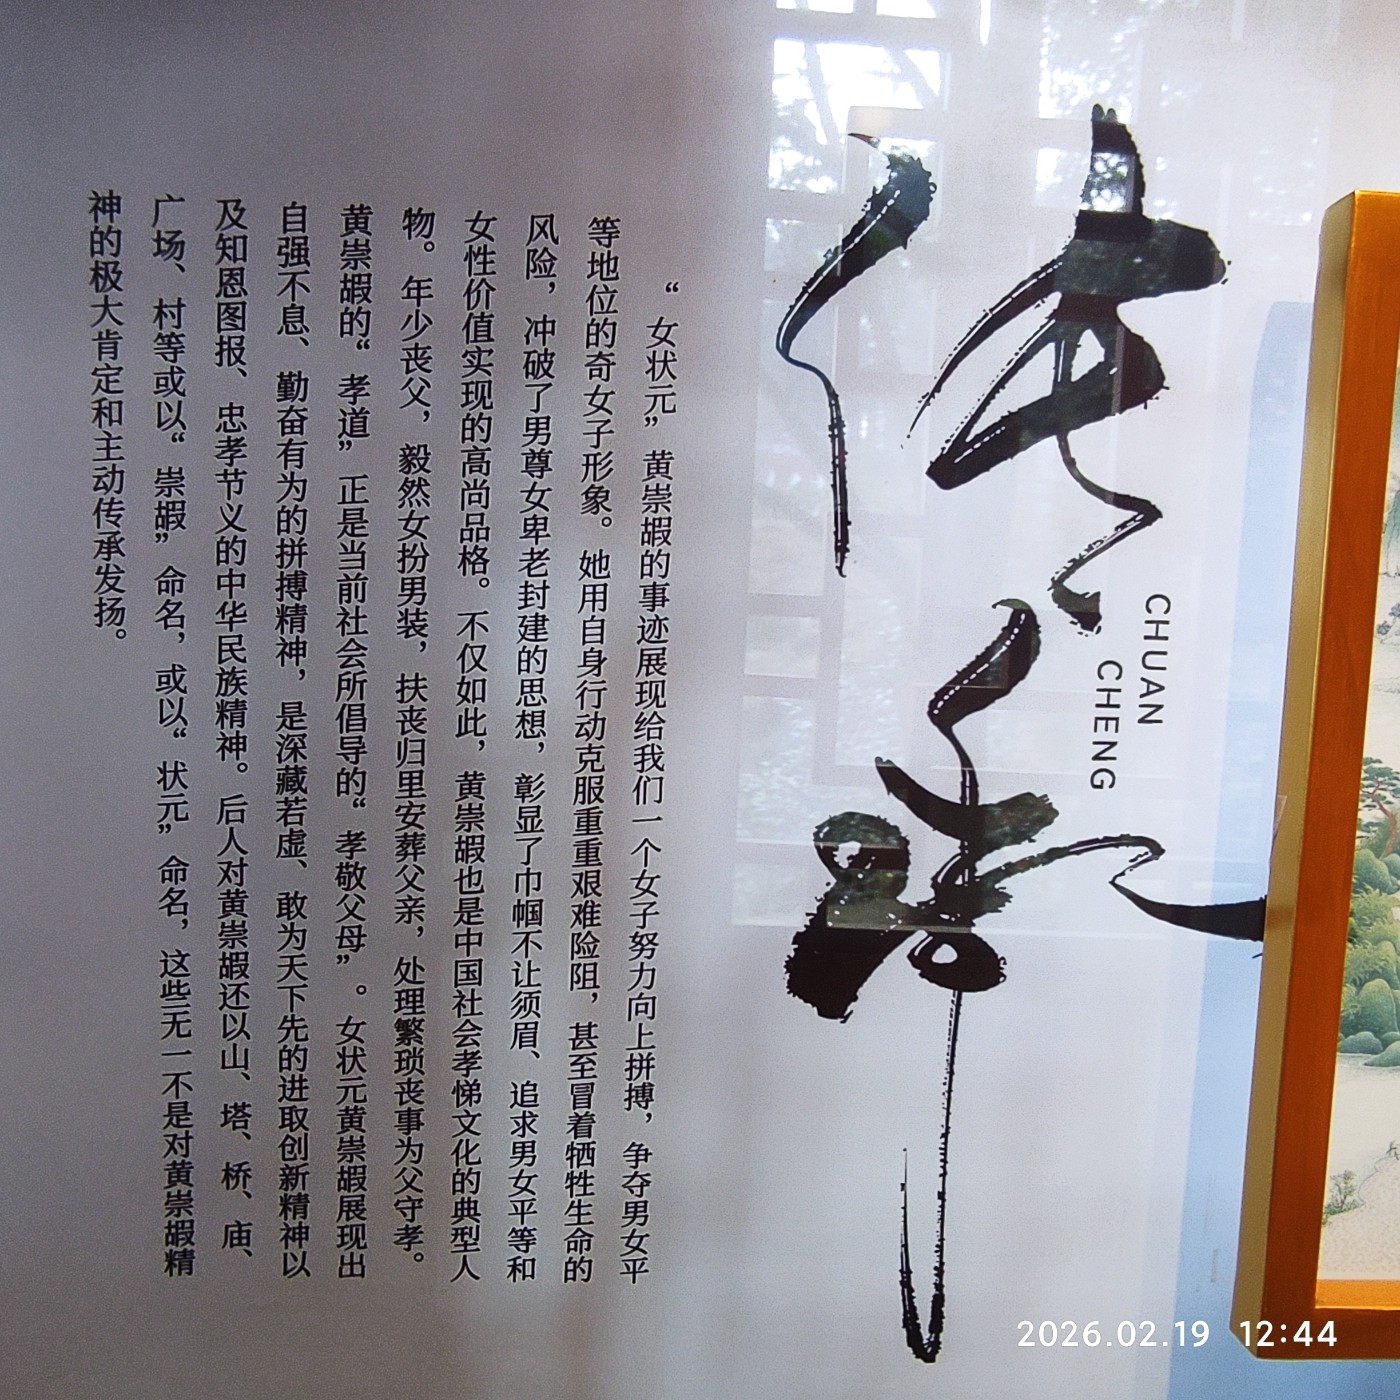 传承
CHUAN
CHENG
“女状元”黄崇嘏的事迹展现给我们一个女子努力向上拼搏，争夺男女平
等地位的奇女子形象。她用自身行动克服重重艰难险阻，甚至冒着牺牲生命的
风险，冲破了男尊女卑老封建的思想，彰显了巾帼不让须眉、追求男女平等和
女性价值实现的高尚品格。不仅如此，黄崇嘏也是中国社会孝悌文化的典型人
物。年少丧父，毅然女扮男装，扶丧归里安葬父亲，处理繁琐丧事为父守孝。
黄崇嘏的“孝道”正是当前社会所倡导的“孝敬父母”。女状元黄崇嘏展现出
自强不息、勤奋有为的拼搏精神，是深藏若虚、敢为天下先的进取创新精神以
及知恩图报、忠孝节义的中华民族精神。后人对黄崇嘏还以山、塔、桥、庙、
广场、村等或以“崇嘏”命名，或以“状元”命名，这些无一不是对黄崇嘏精
神的极大肯定和主动传承发扬。
2026.02.19 12:44